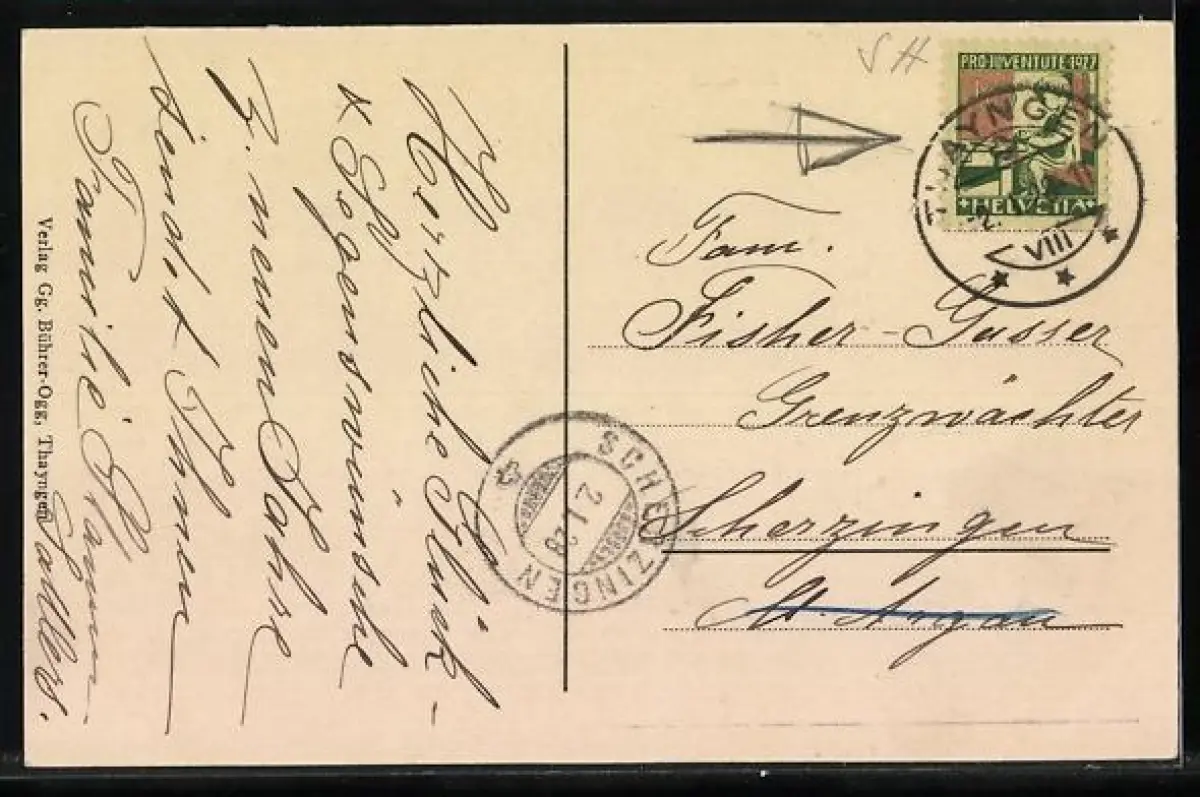 Herzliche Glück-
& Segenswünsche
z. neuen Jahre
sendet Ihnen
Familie
Verlag Gg. Bührer-Ogg, Thayngen
SH
PRO JUVENTUTE 1927
HELVETIA
THAYNGEN
2.
VIII
Fam.
Fisher-Gasser
Grenzwächter
Scherzingen
SCHERZINGEN
2.I.28